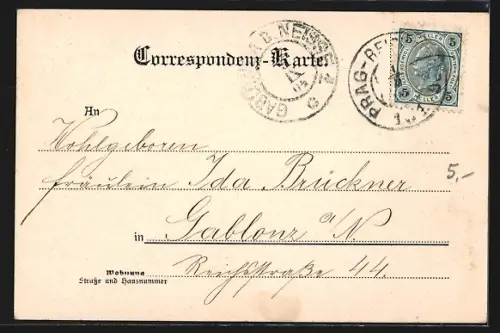 Correspondenz-Karte.
GABLONZ A.D. NEISSE
PRAG-
5 5
5 5
An
Wohlgeboren
Fräulein Ida Brückner
in Gablonz a/N
Reichsstraße 44.
Wohnung
Straße und Hausnummer
5,-